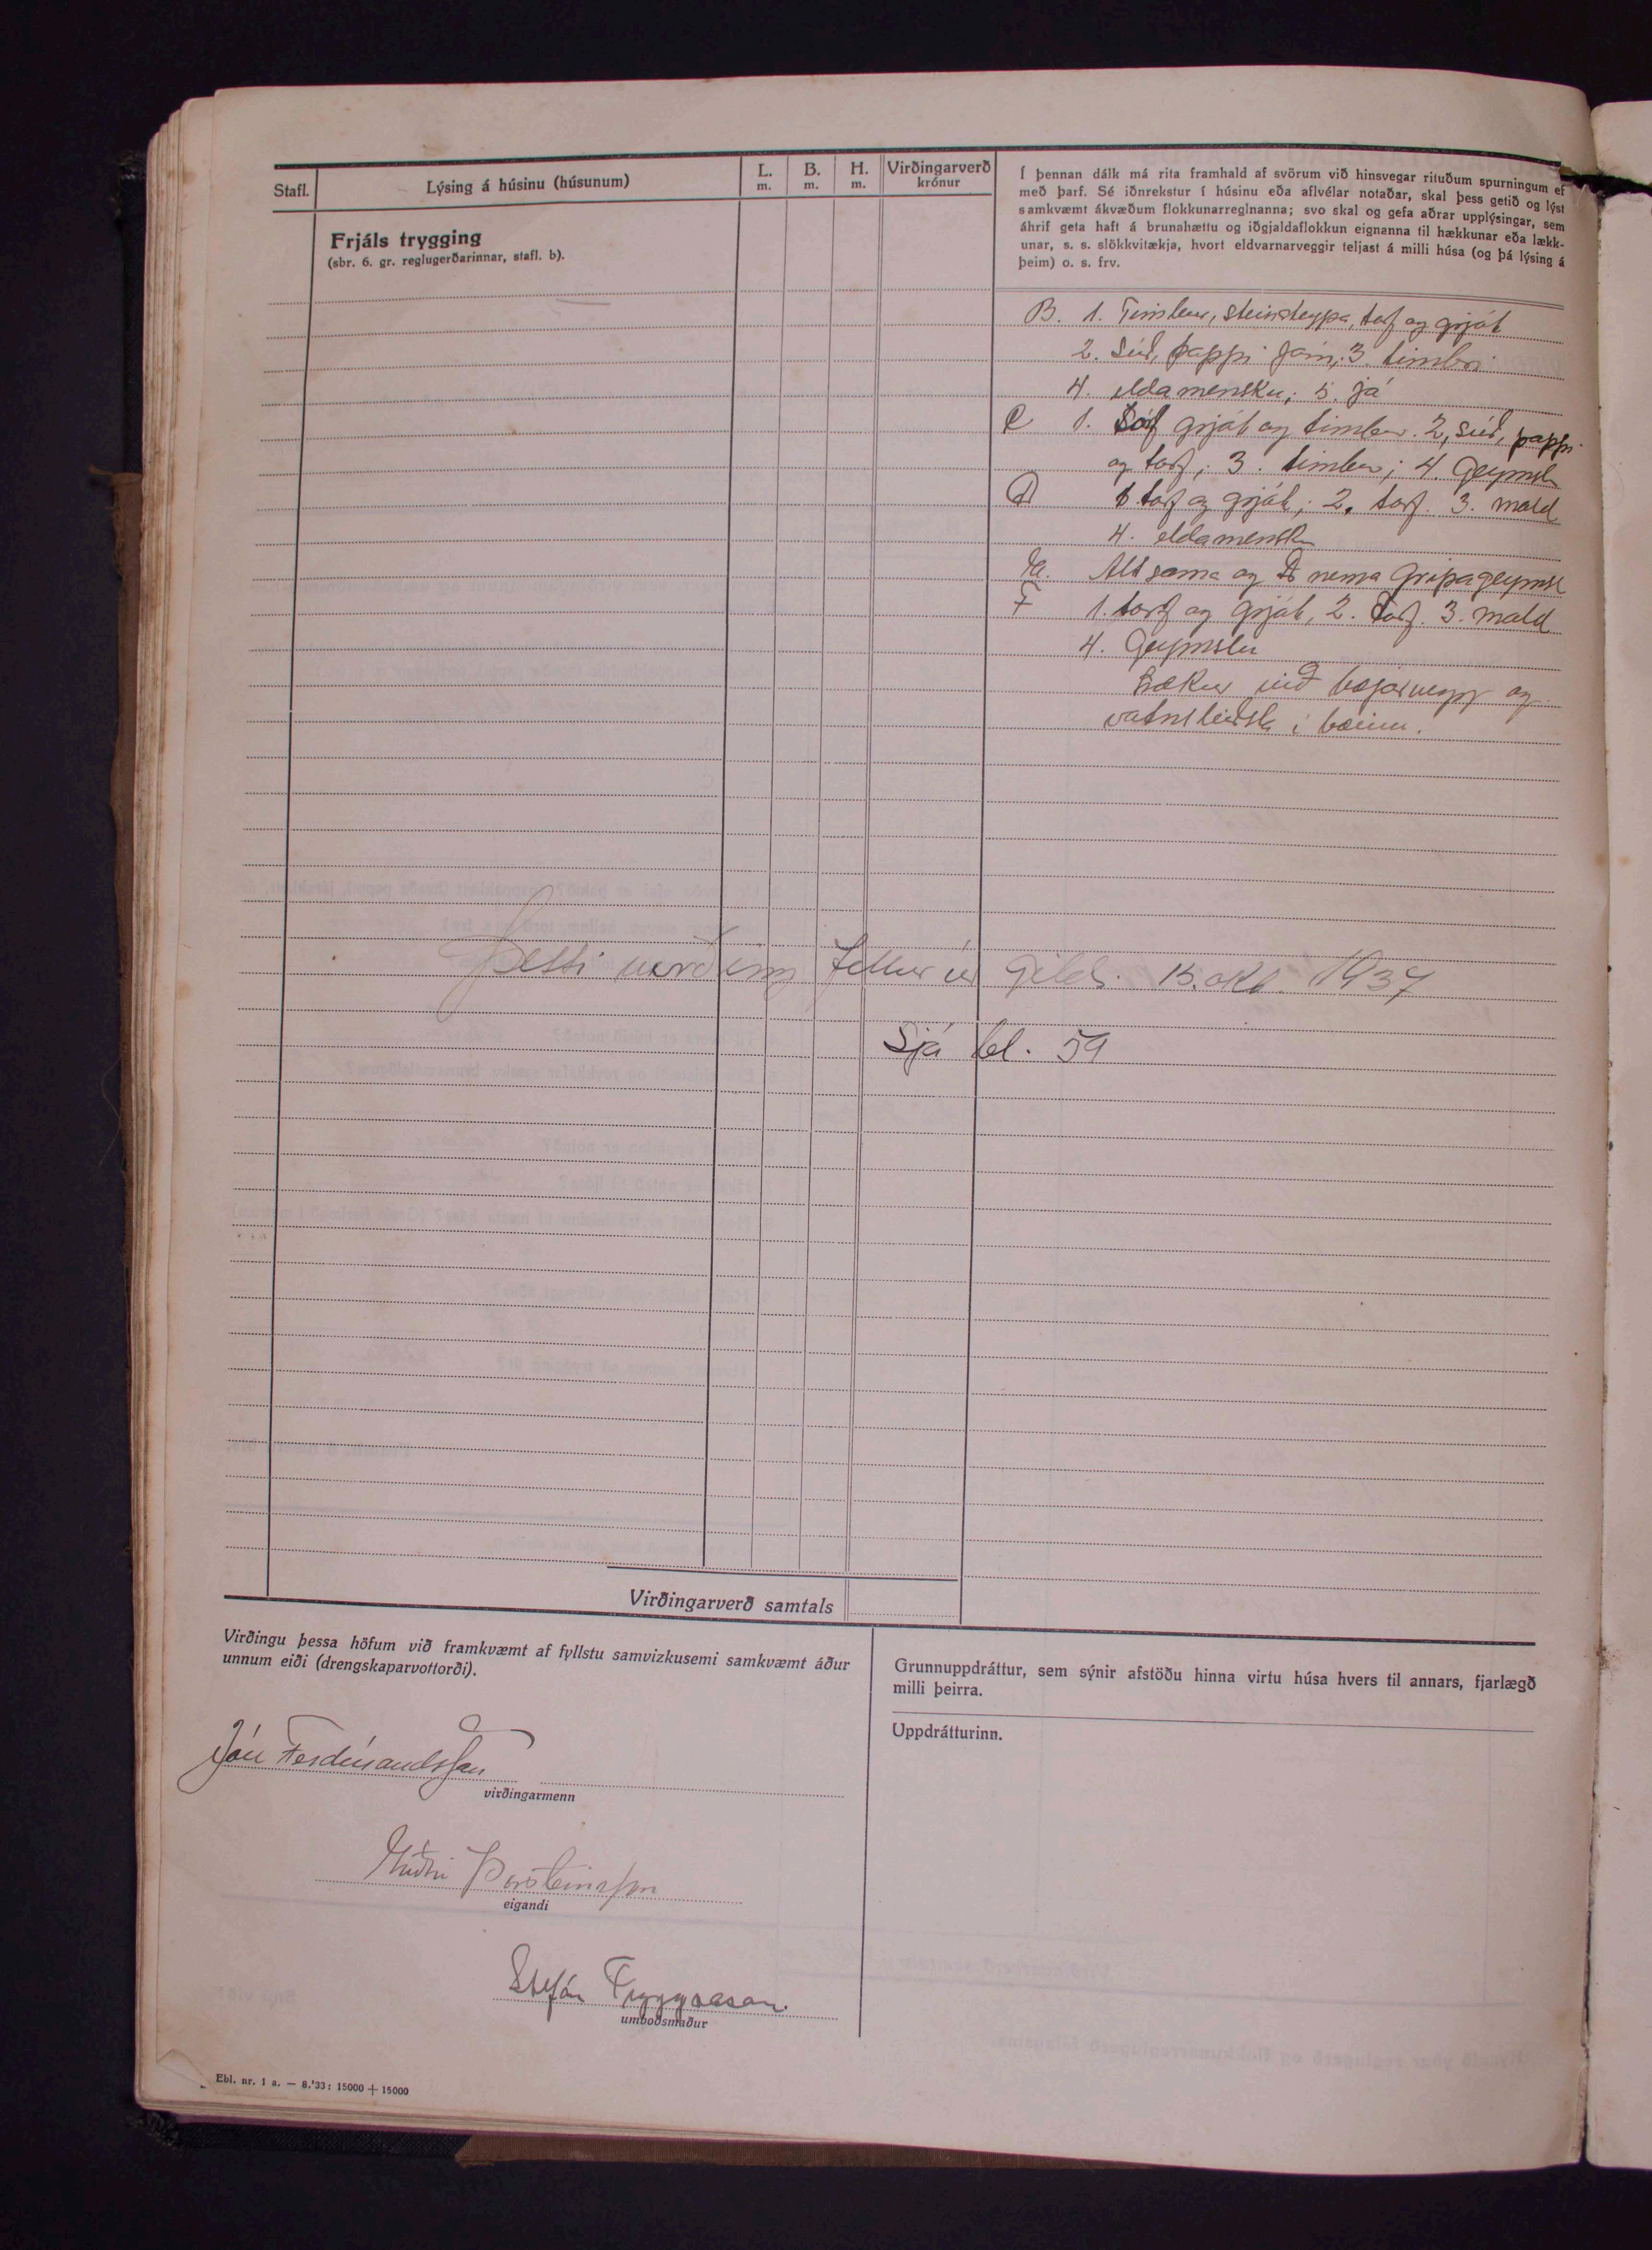 Stafl.
Lýsing á húsinu (húsunum)
L.
m.
B.
m.
H.
m.
Virðingarverð
krónur
Frjáls trygging
(sbr. 6. gr. reglugerðarinnar, stafl. b).
Í þennan dálk má rita framhald af svörum við hinsvegar rituðum spurningum ef
með þarf. Sé iðnrekstur í húsinu eða aflvélar notaðar, skal þess getið og lýst
samkvæmt ákvæðum flokkunarreglnanna; svo skal og gefa aðrar upplýsingar, sem
áhrif geta haft á brunahættu og iðgjaldaflokkun eignanna til hækkunar eða lækk-
unar, s. s. slökkvitækja, hvort eldvarnarveggir teljast á milli húsa (og þá lýsing á
þeim) o. s. frv.
B. 1. Timbur, steinsteypa, torf og grjót
2. Súð, pappi járn; 3. timbri
4. eldamensku; 5. já
C 1. Torf grjót og timbur. 2, súð, pappi
og torf; 3. timbur; 4. Geymsla
D 1. torf og grjót; 2. torf. 3. mold
4. eldamensku
Alt sama og D nema Gripageymsl
F 1. torf og grjót, 2. Torf. 3. mold
4. Geymslu
Lækur við bæjarvegg og
vatnsleiðsla í bænum.
Þessi virðing fellur úr gildi 15. okt. 1937
Sjá bl. 59
Virðingarverð samtals
Virðingu þessa höfum við framkvæmt af fyllstu samvizkusemi samkvæmt áður
unnum eiði (drengskaparvottorði).
Jón Ferdínandsson
virðingarmenn
Þorsteinsson
eigandi
Stefán Tryggvason.
umboðsmaður
Grunnuppdráttur, sem sýnir afstöðu hinna virtu húsa hvers til annars, fjarlægð
milli þeirra.
Uppdrátturinn.
Ebl. nr. 1 a. — 8.'33: 15000 + 15000